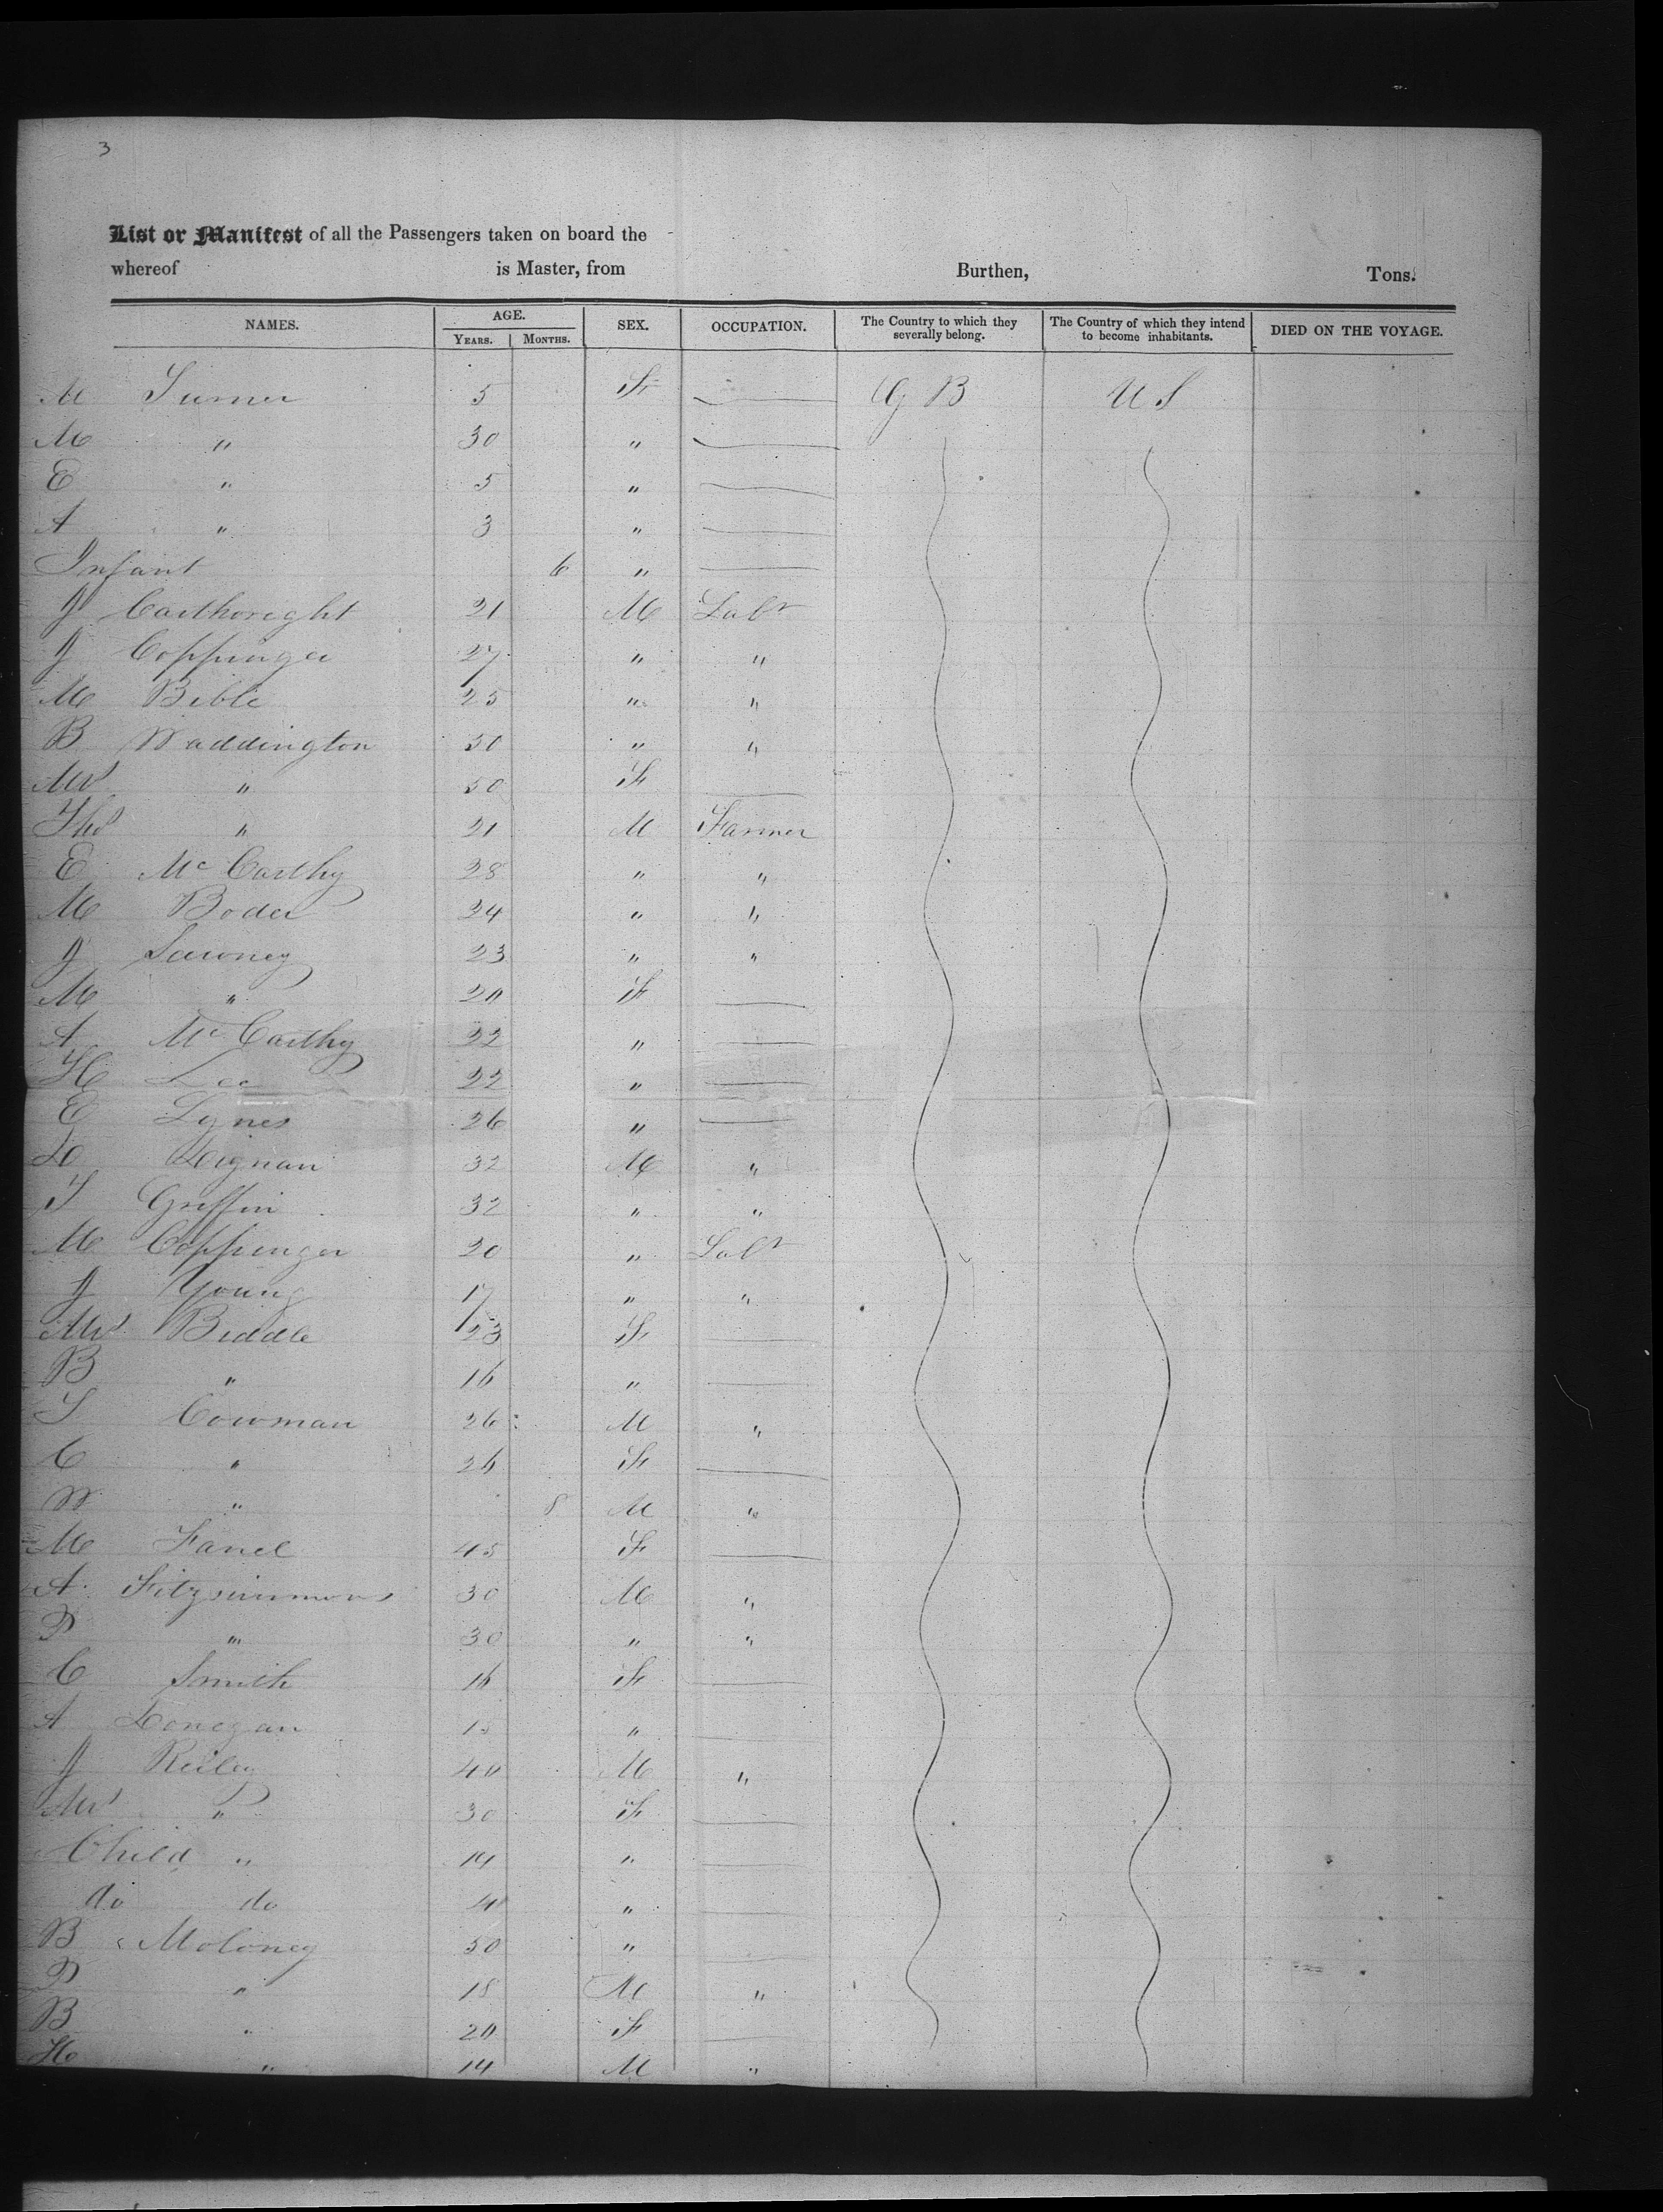 3
List or Manifest of all the Passengers taken on board the
whereof is Master, from Burthen, Tons.
NAMES. AGE. SEX. OCCUPATION. The Country to which they severally belong. The Country of which they intend to become inhabitants. DIED ON THE VOYAGE.
YEARS. MONTHS.
M Turner 5 F — G B U S
M " 30 " —
E " 5 " —
A " 3 " —
Infant 6 " —
J Carthoright 21 M Labr
J Coppinger 27 " "
M Bible 25 " "
B Waddington 50 " "
Mrs " 50 F —
Thos " 21 M Farmer
E McCarthy 28 " "
M Boder 24 " "
J Sawney 23 " "
M " 20 F —
A McCarthy 22 " —
H Lee 22 " —
E Lynes 26 " —
D Deignan 32 M "
T Griffin 32 " "
M Coppinger 20 " Labr
J Young 17 " "
Mrs Biddle 23 F —
B " 16 " —
S Cowman 26 M "
C " 26 F —
W " 8 M "
M Farrel 45 F —
A Fitzsimmons 30 M "
P " 30 " "
C Smith 16 F —
A Donegan 15 " —
J Reiley 40 M "
Mrs " 30 F —
Child " 14 " —
do do 4 " —
B Moloney 50 " —
P " 18 M "
B " 20 F —
H " 14 M "